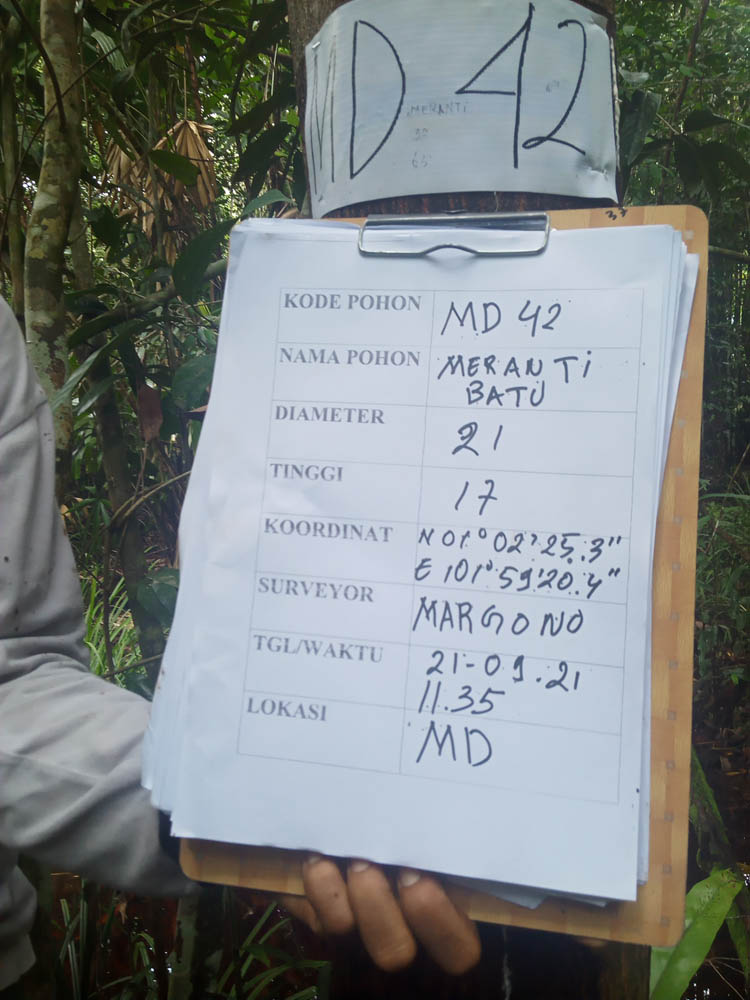 MD 42
MERANTI
65
KODE POHON MD 42
NAMA POHON MERANTI
BATU
DIAMETER 21
TINGGI 17
KOORDINAT N 01° 02' 25.3"
E 101° 59' 20.4"
SURVEYOR MARGONO
TGL/WAKTU 21-09.21
11.35
LOKASI MD